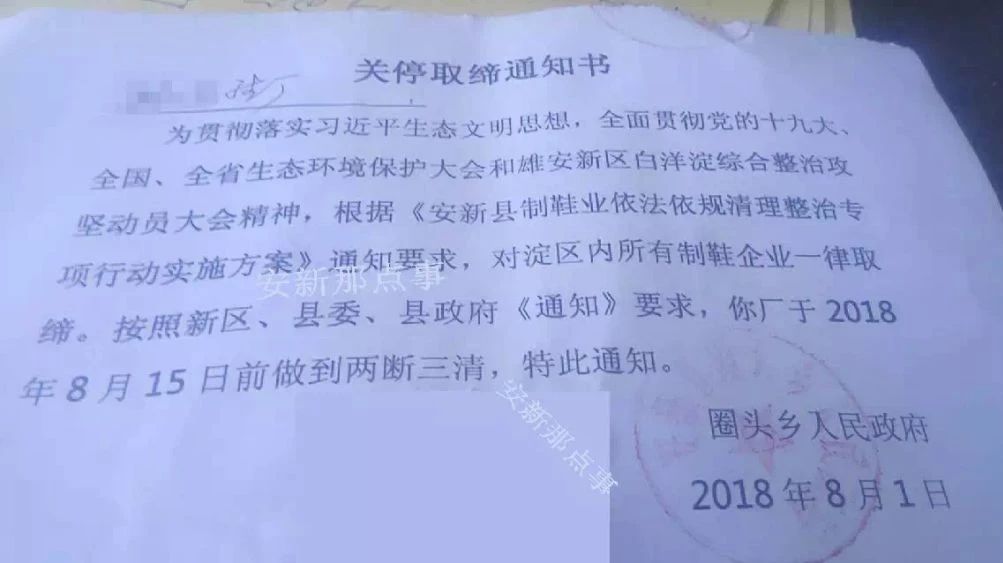 关停取缔通知书
为贯彻落实习近平生态文明思想，全面贯彻党的十九大、
全国、全省生态环境保护大会和雄安新区白洋淀综合整治攻
坚动员大会精神，根据《安新县制鞋业依法依规清理整治专
项行动实施方案》通知要求，对淀区内所有制鞋企业一律取
缔。按照新区、县委、县政府《通知》要求，你厂于 2018
年 8 月 15 日前做到两断三清，特此通知。
圈头乡人民政府
2018 年 8 月 1 日
安新那点事
安新那点事